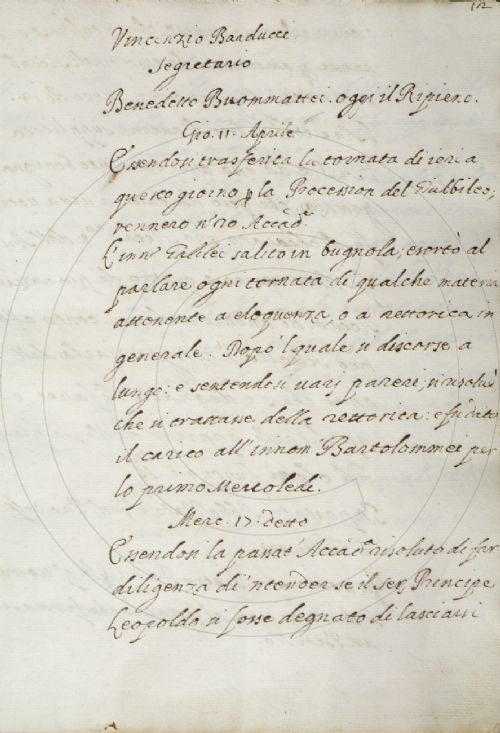 102
Vincenzio Barducci
Segretario
Benedetto Buommattei. oggi il Ripieno.
Gio. 11. Aprile
Essendosi trasferita la tornata di ieri a
questo giorno p la Procession del Giubbileo,
vennero n° 20 Accad.ci
L'inn° Galilei salito in bugnola, esortò al
parlare ogni tornata di qualche materia
attenente a eloquenza, o a rettorica in
generale. Dopo 'l quale si discorse a
lungo: e sentendosi varj pareri, si risolvè
che si trattasse della rettorica: e fu dato
il carico all'innom Bartolommei per
lo primo Mercoledì.
Merc. 17. detto
Essendosi la passat' Accad.a risoluto di far
diligenza di 'ntender se il Ser. Principe
Leopoldo si fosse degnato di lasciarsi